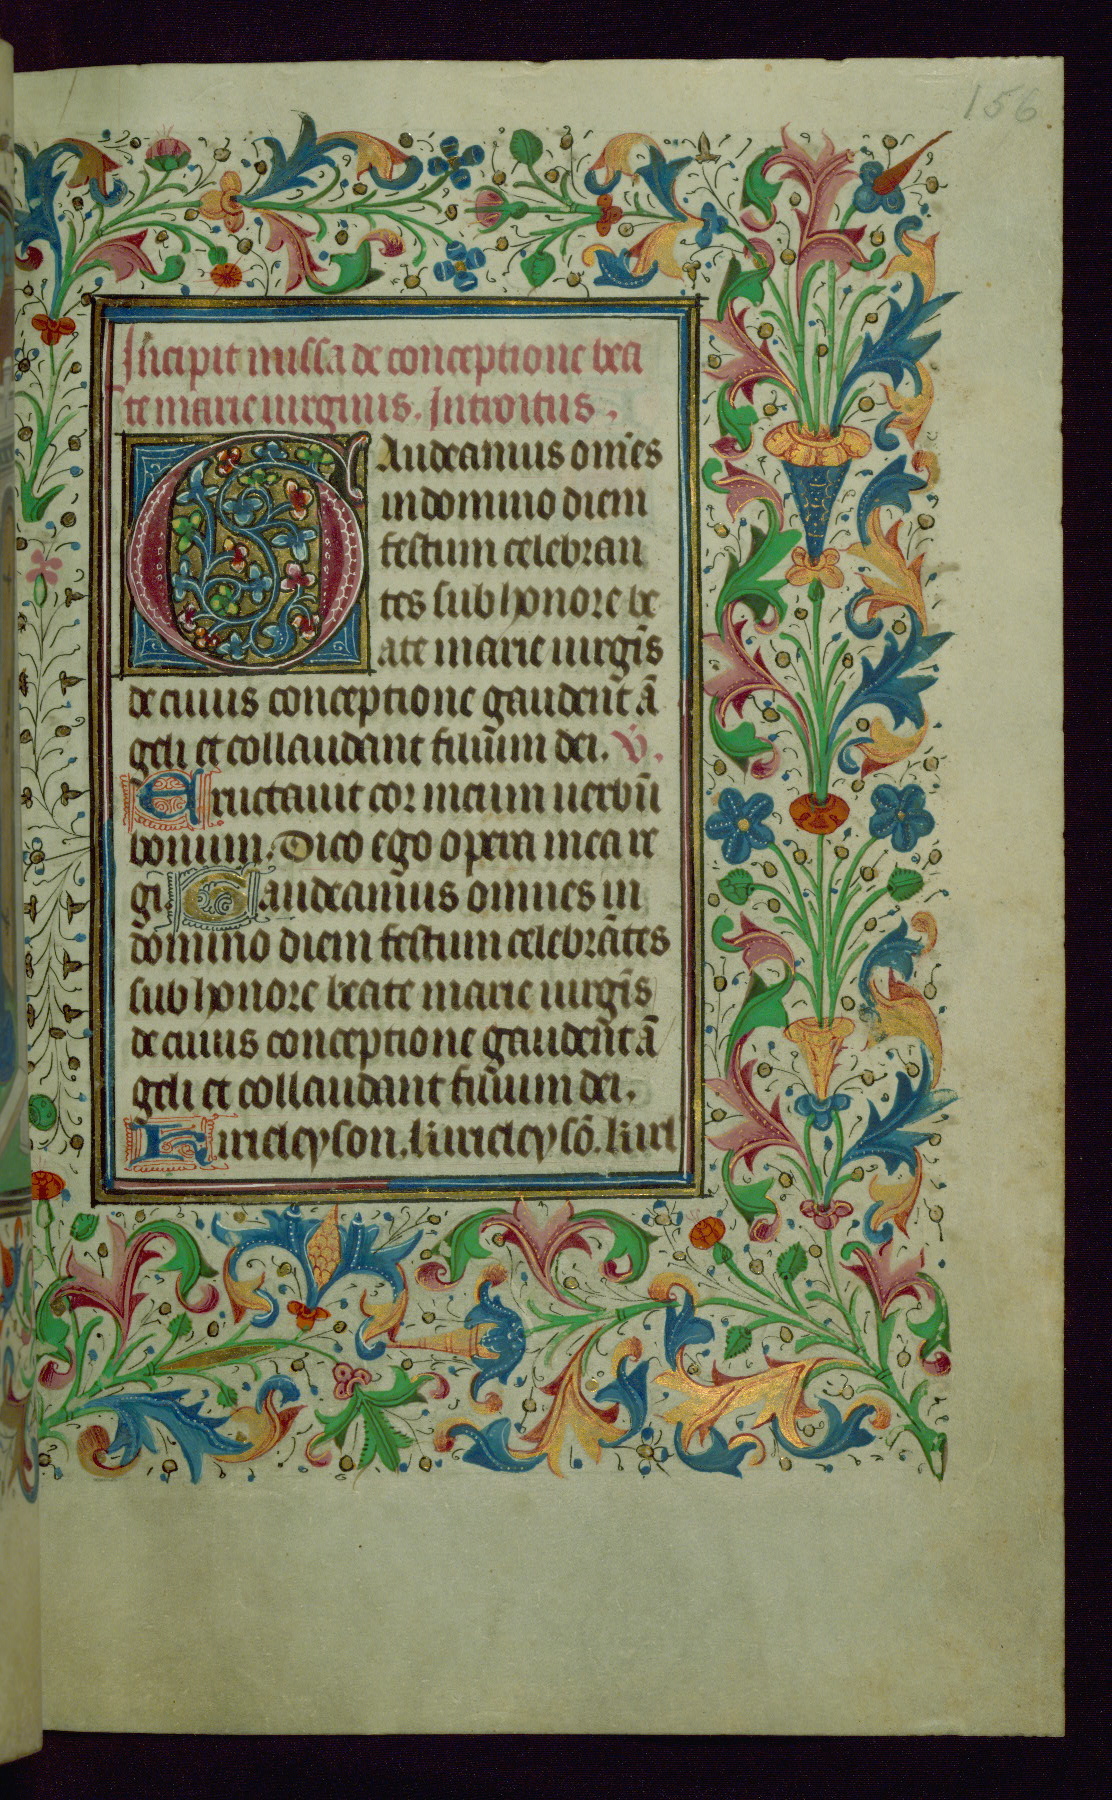 156
Incipit missa de conceptione bea
te marie uirginis. Introitus.
GAudeamus om̄es
in domino diem
festum celebran
tes sub honore be
ate marie uirgīs
de cuius conceptione gaudēt ā
geli et collaudant filiūm dei. V̄.
Eructauit cor meum uerbū
bonum. Dico ego opera mea re
gi. Gaudeamus omnes in
domino diem festum celebrātes
sub honore beate marie uirgīs
de cuius conceptione gaudēt ā
geli et collaudant filiūm dei.
Kirieleyson. kirieleysō. kiriel